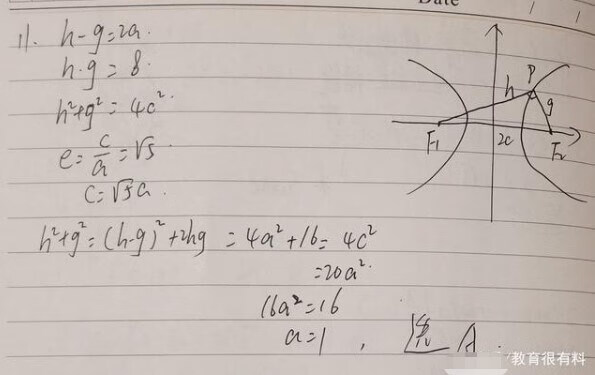 Date
11. h-g=2a.
h·g=8.
h²+g²=4c².
e=c/a=√5
c=√5a.
h²+g²=(h-g)²+2hg=4a²+16=4c²
=20a².
16a²=16
a=1, 选A.
P
h
g
F₁
2c
F₂
教育很有料